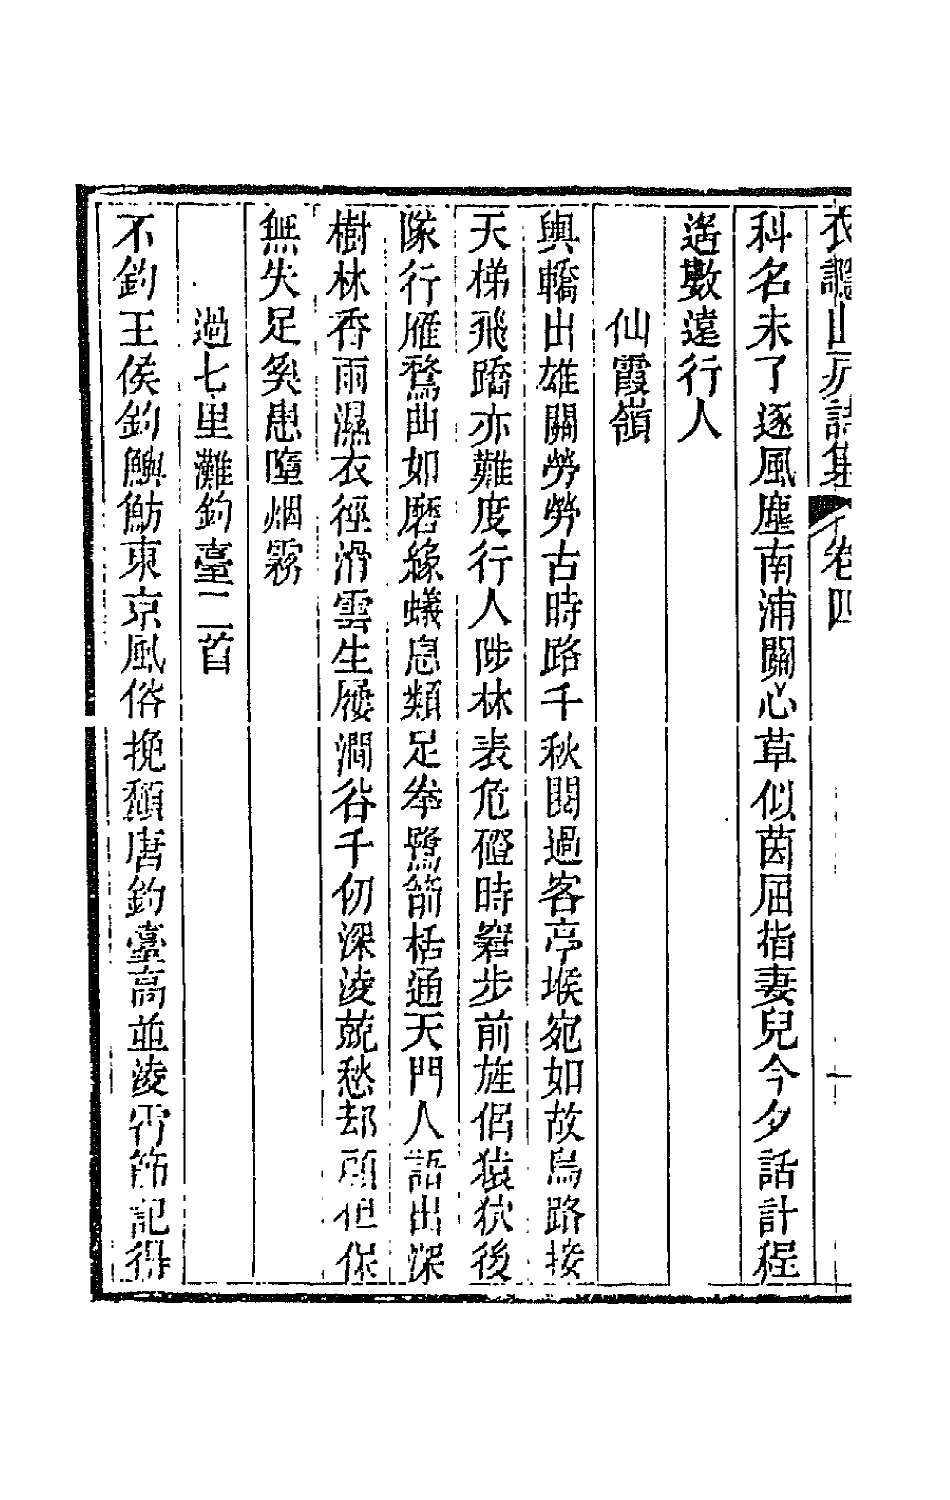 衣讔山房詩集 卷四
科名未了逐風塵南浦關心草似茵屈指妻兒今夕話計程
遙數遠行人
仙霞嶺
輿轎出雄關勞勞古時路千秋閱過客亭堠宛如故鳥路接
天梯飛蹻亦難度行人陟林表危磴時窘步前旌侶猿狖後
隊行雁鶩曲如磨緣蟻息類足拳鷺箭栝通天門人語出深
樹林香雨濕衣徑滑雲生屨澗谷千仞深淩兢愁却顧但保
無失足奚患墮烟霧
過七里灘釣臺二首
不釣王侯釣鱮魴東京風俗挽頽唐釣臺高並淩霄節記得